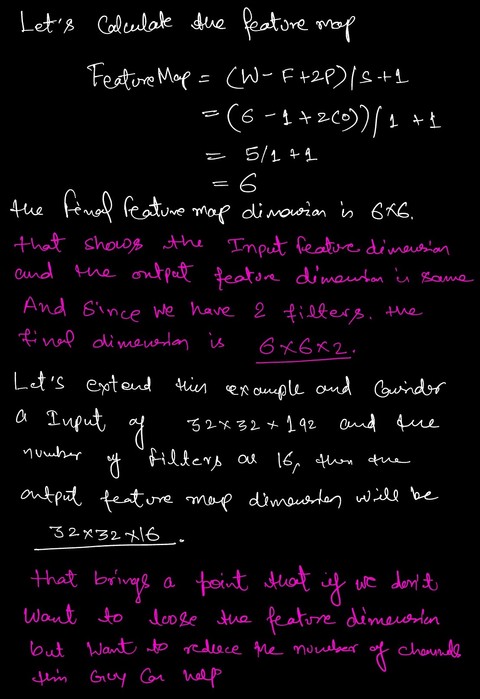 Let's Calculate the feature map
FeatureMap = (W - F + 2P) / S + 1
= (6 - 1 + 2(0)) / 1 + 1
= 5/1 + 1
= 6
the final feature map dimension is 6×6.
that shows the Input feature dimension
and the output feature dimension is same
And Since we have 2 filters. the
final dimension is 6×6×2.
Let's extend this example and Consider
a Input of 32×32×192 and the
number of filters as 16, then the
output feature map dimension will be
32×32×16.
that brings a point that if we don't
want to loose the feature dimension
but want to reduce the number of channels
this Guy Can help